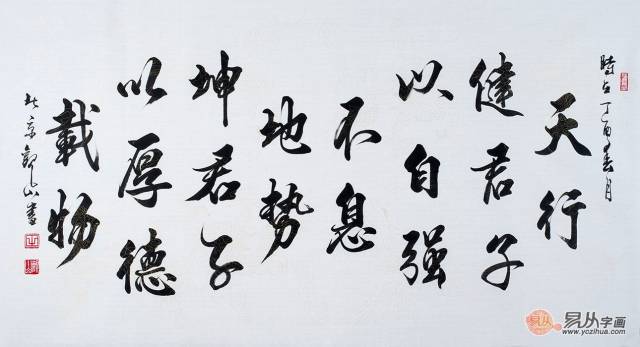 時在丁酉春月
天行
健君子
以自强
不息
地势
坤君子
以厚德
載物
北京山書
易从字画
www.yczihua.com